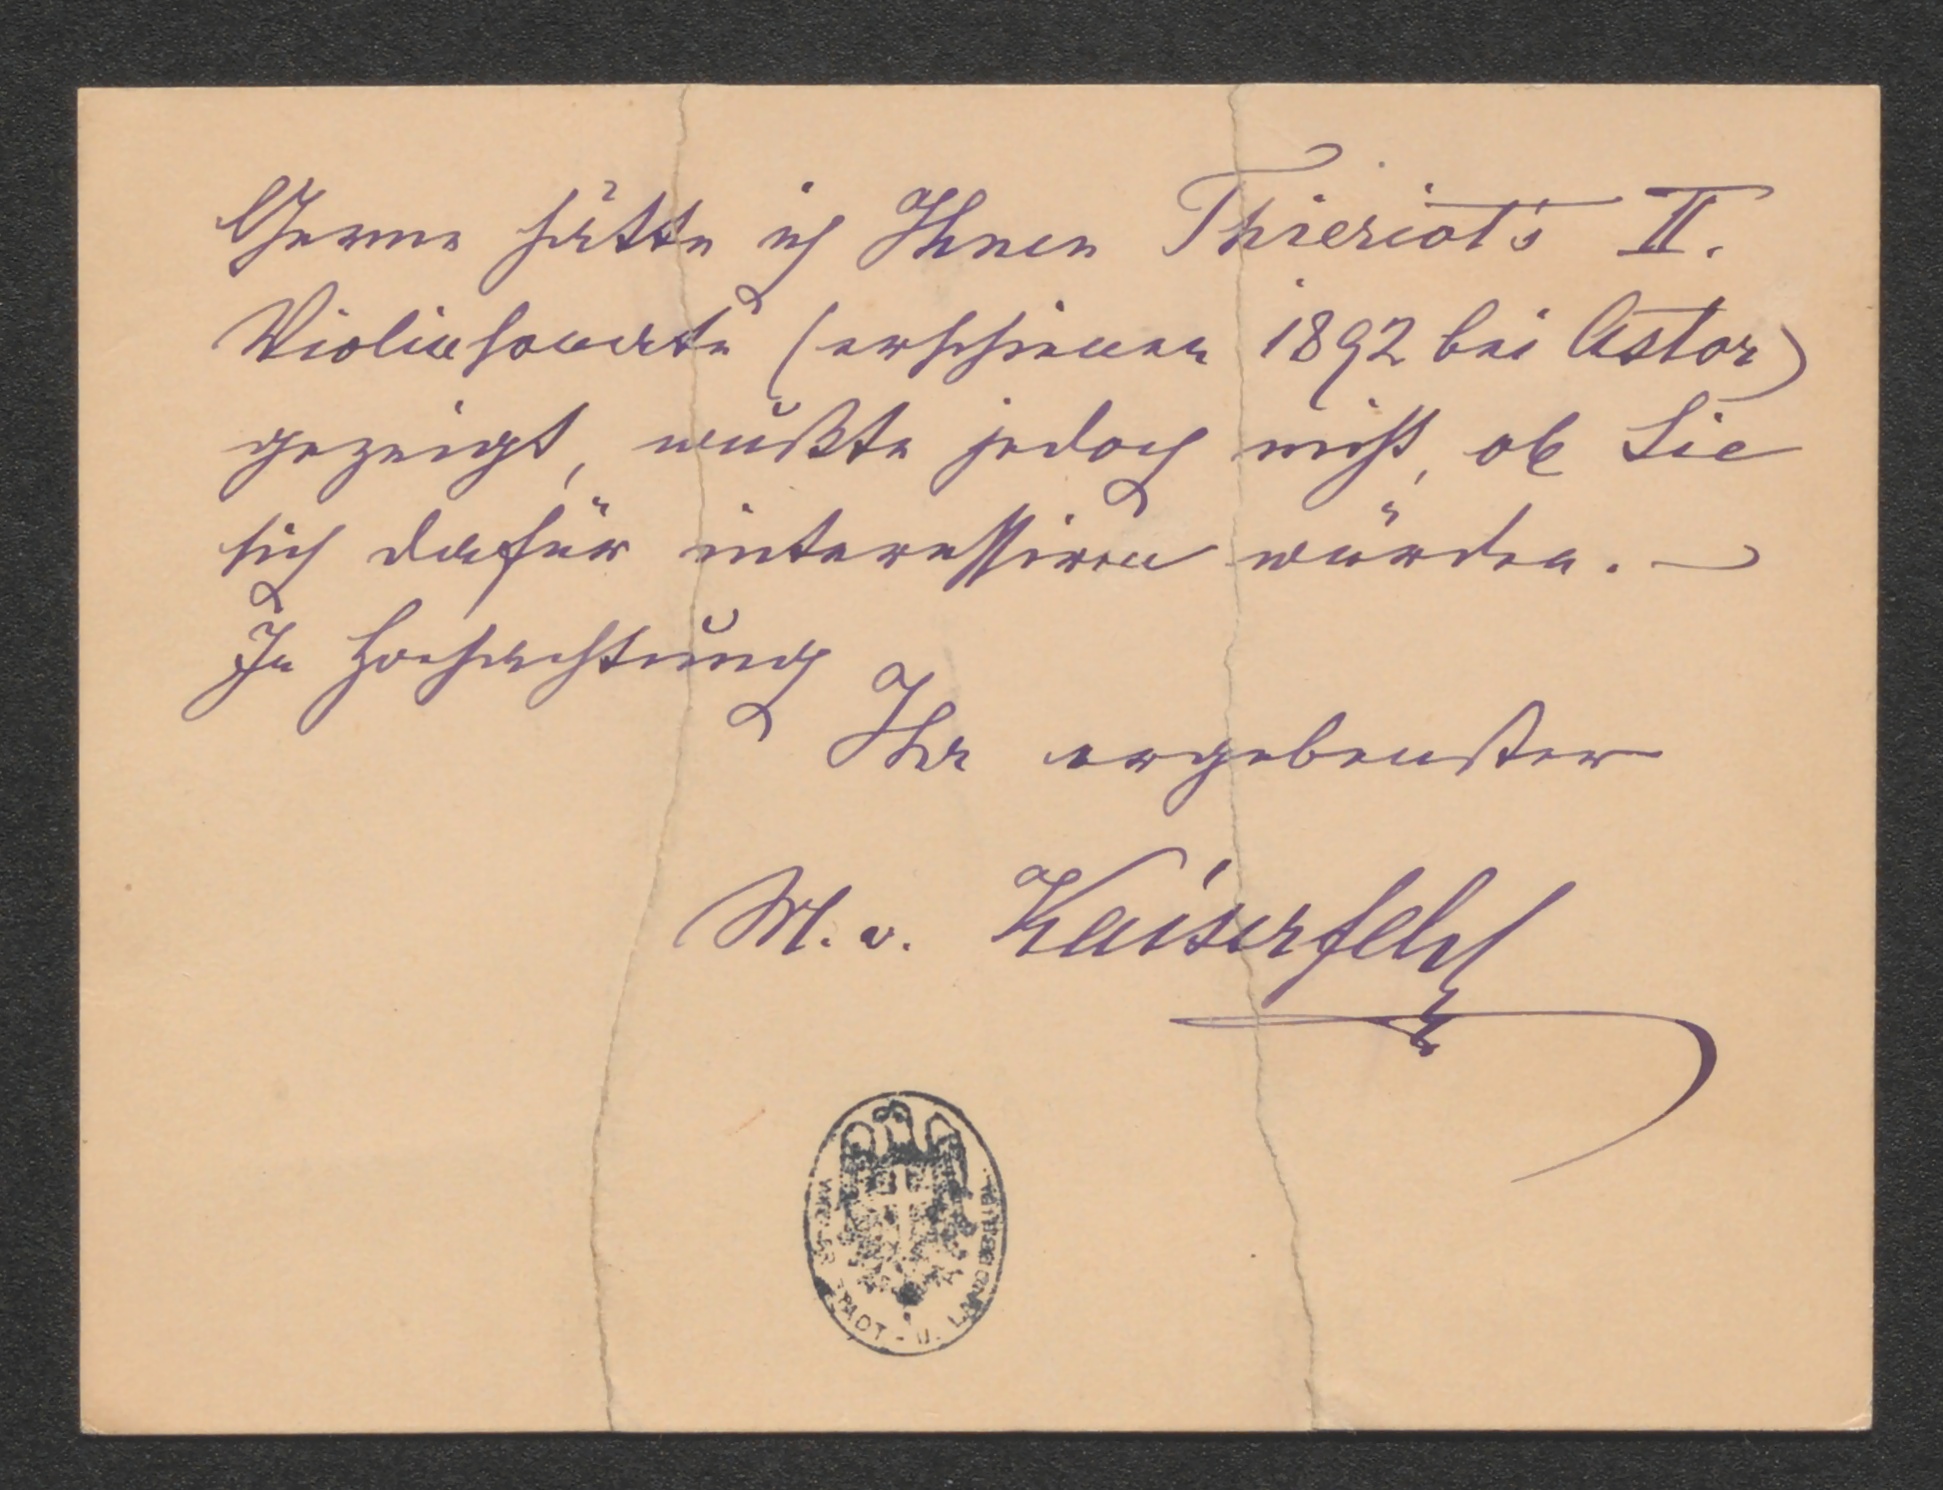 Gerne hätte ich Ihnen Thieriot's II.
Violinsonate (erschienen 1892 bei Astor)
gezeigt, wußte jedoch nicht, ob Sie
sich dafür interessiren würden. —
In Hochachtung
Ihr ergebenster
M. v. Kaiserfeld
STADT - U. LANDESBIBL